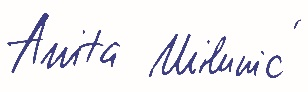 Anita Milunić